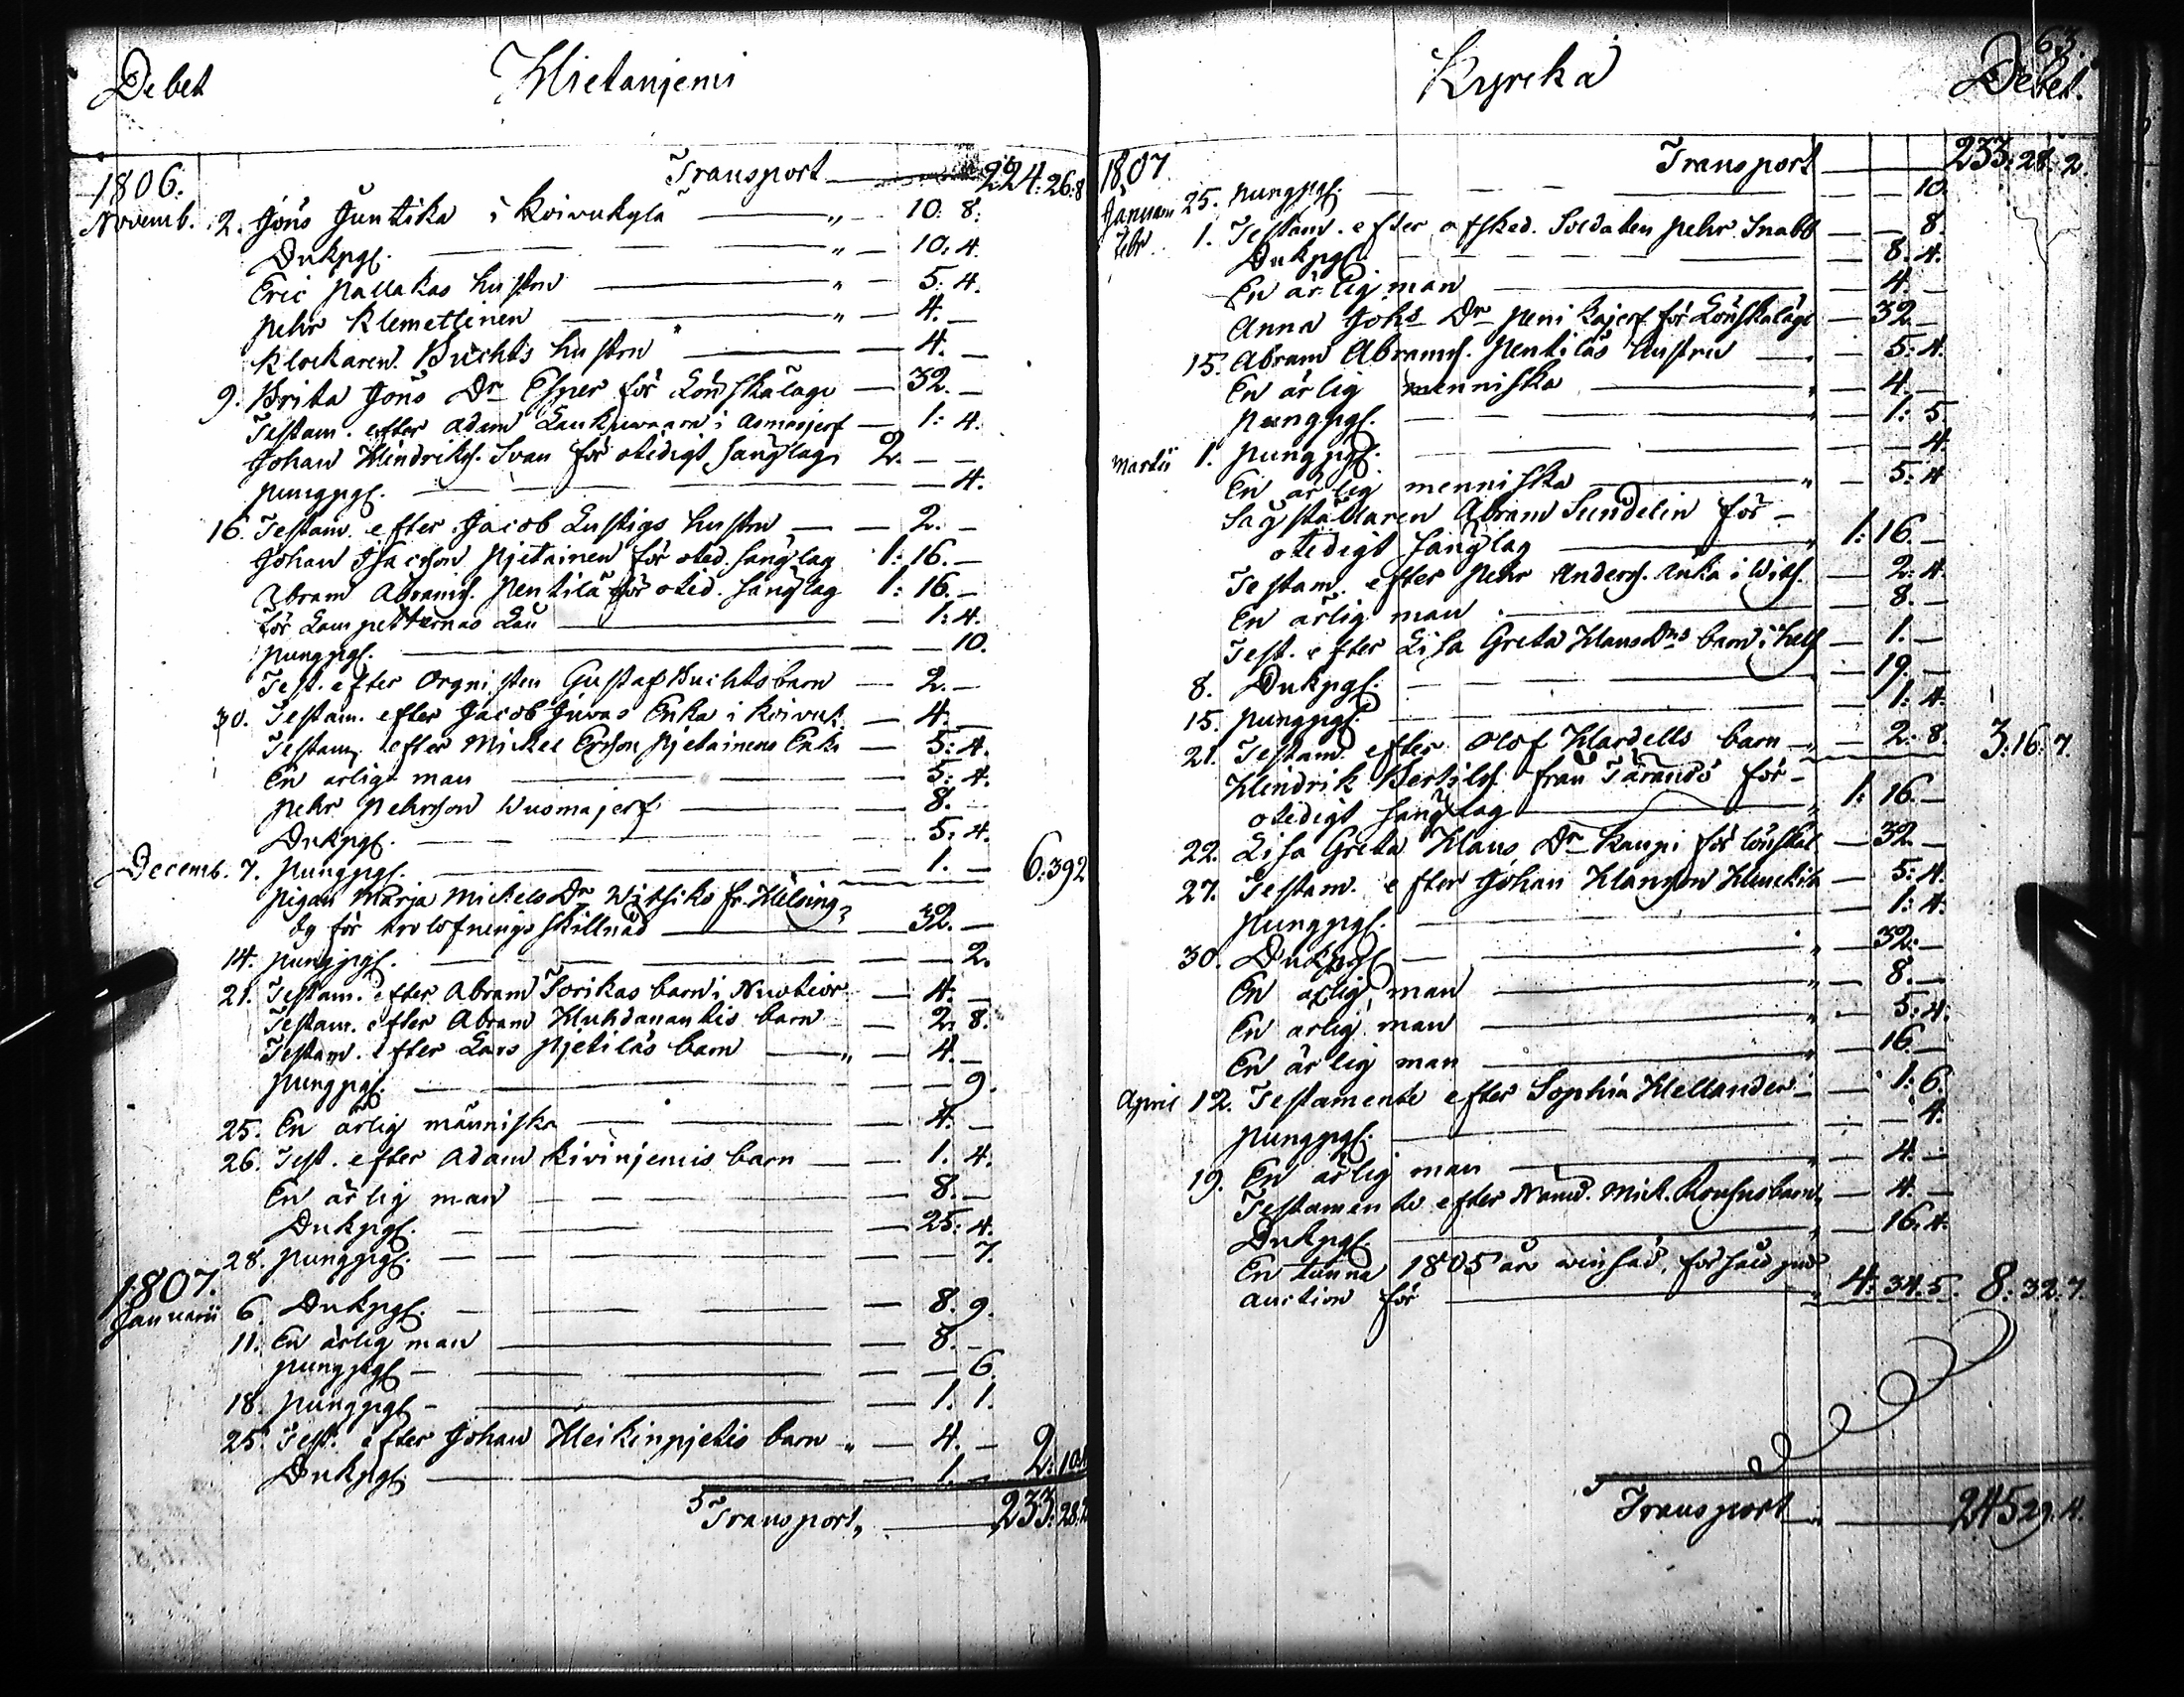 Debet Hietaniemi
Transport 224:26:8
1806.
Novemb. 2. Jöns Juntika i Koivukylä 10: 8.
Dukpgl. 10: 4.
Eric Pallakas hustru 5: 4.
Pehr Klemettinen 4. –
Klockaren Buchts hustru 4. –
9. Brita Jöns Dr Esper för Lönskaläge 32. –
Testam. efter Adam i Armasjerf 1: 4.
Johan Hindrichs. Svan för otidigt sänglag 2. – –
Pungpgl. 4.
16. Testam. efter Jacob Lustigs hustru 2. –
Johan Isacsson Pjetainen för otid. sänglag 1: 16. –
Abram Abrams. Pentilä för otid. sänglag 1: 16. –
för Lampetternas Lån 1: 4.
Pungpgl. 10.
Test. efter Orgnisten Gustaf Buchts barn 2. –
30. Testam. efter Jacob Juvas Enka i Koivuk. 4. –
Testam. efter Mickel Ersson Pjetainens Enk. 5: 4.
En ärlig man 5: 4.
Pehr Pehrsson Wuomajerf 8. –
Dukpgl. 5: 4.
Decemb. 7. Pungpgl. 1. – 6:39 2
Pigan Marja Mickels Dr Witsiko fr. Helsing
by för trolofnings skillnad 32. –
14. Pungpgl. 2.
21. Testam. efter Abram Torikas barn i 4. –
Testam. efter Abram barn 2: 8.
Testam. efter Lars Pjetiläs barn 4. –
Pungpgl. 9.
25. En ärlig människa 4. –
26. Test. efter Adam Kiviniemis barn 1. 4.
En ärlig man 8. –
Dukpgl. 25: 4.
28. Pungpgl. 7.
1807.
Januarii 6. Dukpgl. 8. 9.
11. En ärlig man 8. –
Pungpgl. 6.
18. Pungpgl. 1. 1.
25. Test. efter Johan Heikinpjetis barn 4. –
Dukpgl. 1. – 2: 10:
Transport, 233:28:2
63.
Kyrcka Debet.
Transport 233:28:2.
1807.
Januarii 25. Pungpgl. 10.
Febr. 1. Testam. efter afsked. Soldaten Pehr Snabb 8.
Dukpgl. 8. 4.
En ärlig man 4. –
Anna Johs Dr för Lönskaläge 32. –
15. Abram Abrams. Pentiläs hustru 5: 4.
En ärlig menniska 4. –
Pungpgl. 1: 5.
Martii 1. Pungpgl. 4.
En ärlig menniska 5: 4
Sågställaren Abram Sundelin för –
otidigt sänglag 1: 16. –
Testam. efter Pehr Anders. Anka i Wits. 2: 4.
En ärlig man 8. –
Test. efter Lisa Greta Hans Drs barn i Hels 1. –
8. Dukpgl. 19. –
15. Pungpgl. 1: 4.
21. Testam. efter Olof Hardells barn 2. 8. 3:16:7.
Hindrik Bertils. från Tärändö för –
otidigt sänglag 1: 16. –
22. Lisa Greta Hans Dr Kaupi för lönskal 32. –
27. Testam. efter Johan Hansson 5: 4.
Pungpgl. 1: 4.
30. Dukpgl. 32. –
En ärlig man 8. –
En ärlig man 5: 4.
En ärlig man 16. –
April 12. Testamente efter Sophia Hellander 1: 6.
Pungpgl. 4.
19. En ärlig man 4. –
Testamente efter Nämd. Mick. barn 4. –
Dukpgl. 16: 4.
En tunna 1805 års försåld på
auction för 4: 34. 5. 8: 32. 7.
Transport 245 29. 4.